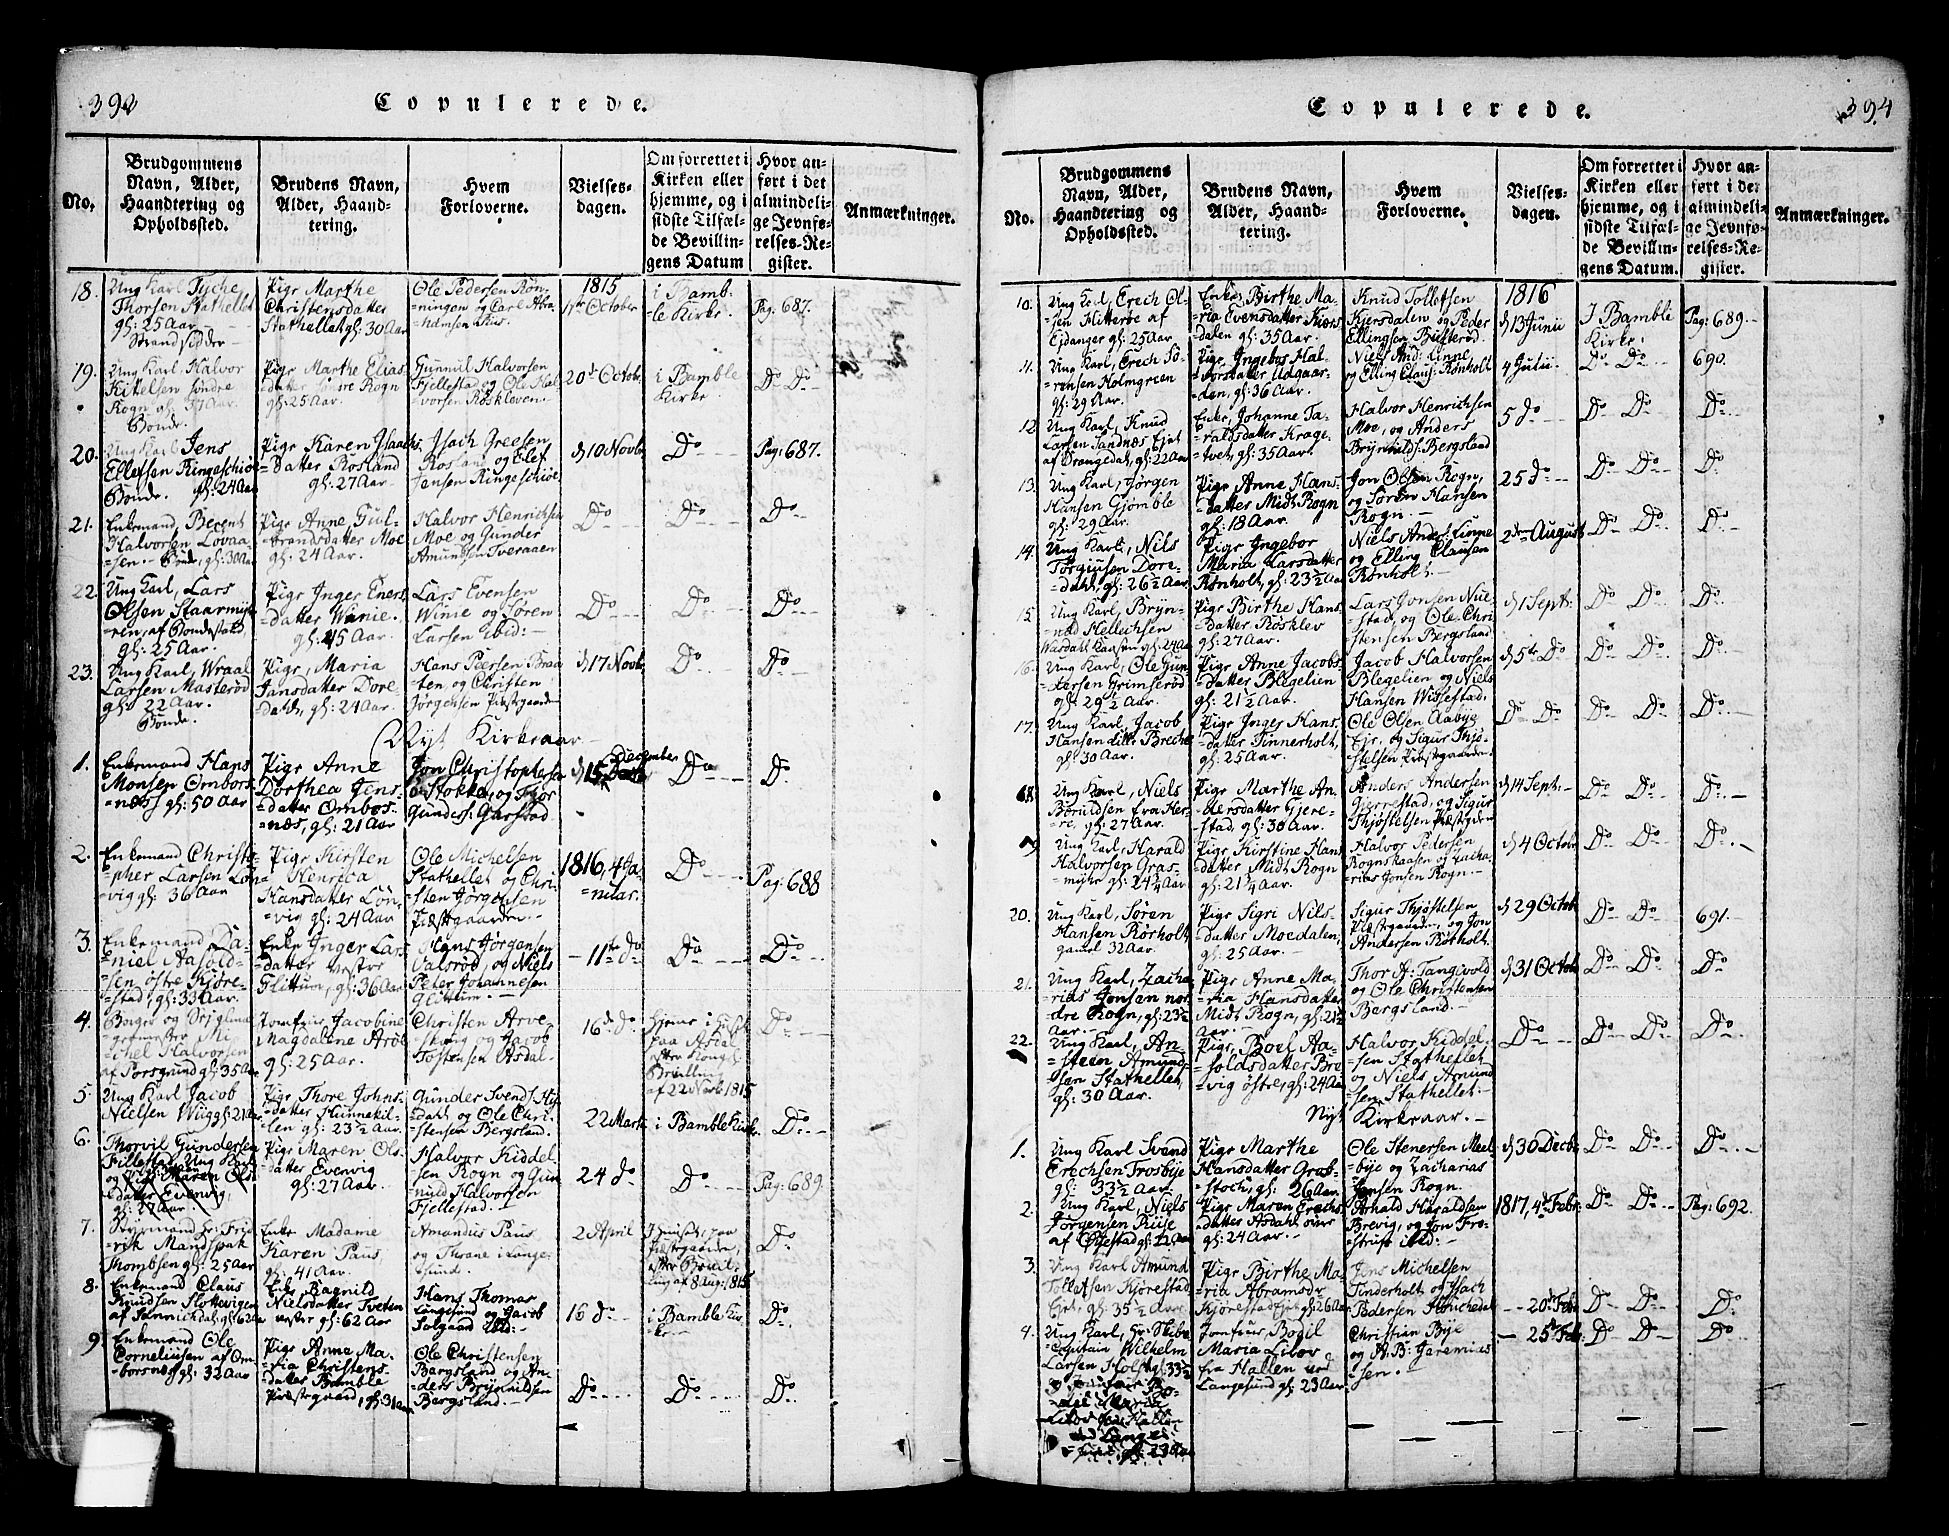 392
Copulerede.
No.
Brudgommens
Navn, Alder,
Haandtering og
Opholdssted.
Brudens Navn,
Alder, Haand-
tering.
Hvem
Forloverne.
Vielses-
dagen.
Om forrettet i
Kirken eller
hjemme, og i
sidste Tilfæl-
de Bevillin-
gens Datum
Hvor an-
ført i det
almindeli-
ge Jevnfø-
relses-Re-
gister.
Anmærkninger.
18.
Ung Karl Tyche
Thorsen Stathellet
gl: 25 Aar
Strandsidder
Pige Marthe
Christensdatter
Stathellet gl: 30 Aar
Ole Pedersen Røn-
ningen og Carl Abra-
hamsen
1815
October
i Bamb-
le Kirke.
Pag: 687.
19.
Ung Karl Halvor
Kittelsen søndre
Rogn gl: 37 Aar.
Bonde.
Pige Marthe Elias
=datter søndre Rogn
gl: 25 Aar.
Gunnul Halvorsen
Fjellestad og Ole Hal-
vorsen Røskleven.
20d Octobr.
i Bamble
Kirke.
Do Do
20.
Ung Karl Jens
Ellefsen Ringeschiøe
Bonde. gl: 24 Aar
Pige Karen Isaachs
=datter Rosland
gl: 27 Aar
Isach Greesen
Rosland og Elef
Jensen Ringeschiøe
d 10 Novbr
Do
Pag: 687.
21.
Enkemand, Berent
Halvorsen Lovaa-
sen Bonde, gl: 30 Aar
Pige Anne Gul-
brandsdatter Moe
gl: 24 Aar.
Halvor Henrichsen
Moe og Gunder
Amundsen Tveraaen
Do
Do
Do
22.
Ung Karl, Lars
Olsen Staarmyh-
ren, af Bondestald,
gl: 25 Aar.
Pige Inger Evens
datter Winie.
gl: 45 Aar.
Lars Evensen
Winie og Søren
Larsen Ibid:
Do
Do
Do
23.
Ung Karl, Wraal
Larsen Masterød
gl: 22 Aar.
Bonde.
Pige, Maria
Jansdatter Dore-
dahl, gl: 24 Aar.
Hans Peersen Braa-
ten, og Christen
Jørgensen Præstgaarden
d 17 Novbr
Do
Do
Nyt Kirkeaar
1.
Enkemand Hans
Monsen Ombors-
næs gl: 50 Aar
Pige Anne
Dorthea Jens-
=datter Ombos-
=næs, gl: 21 Aar
Jon Christophersen
Stokke, og Thor
Gunders: Garstad
d 15 December
Do
Do
2.
Enkemand Christo-
=pher Larsen Løn-
vig gl: 36 Aar
Pige Kirsten
Henrica
Hansdatter Løn-
=vig gl: 24 Aar
Ole Michelsen
Stathellet og Chri-
sten Jørgensen
Præstgaarden
1816, 4 Ja-
=nuar.
Do
Pag: 688
3.
Enkemand, Da-
=niel Aasold-
sen østre Kjøre-
=stad, gl: 33 Aar.
Enke Inger Lars-
datter vester
Glittum, gl: 36 Aar
Hans Jørgensen
Valsrød, og Niels
Peter Johannesen
Glittum.
11te do
Do
Do
4.
Borger og Seiglma-
germester Mi-
chel Halvorsen
af Porsgrund gl: 35 Aar
Jomfrue Jacobine
Magdalene Arøe
gl: 25 Aar.
Christen Arve-
skoug og Jacob
Tostensen Asdal
16d do
Hjeme i Huset
paa Asdal
efter Kongl:
Bevilling
af 22 Novb: 1815
Do
5.
Ung Karl Jacob
Nielsen Wiig gl: 21 Aar
Pige Thore Johns
=datter Hunnekil-
len gl: 23½ Aar.
Gunder Svends:
dahl og Ole Chri-
stensen Bergsland.
22 Marts
i Bamble Kirke.
Do
6.
Thorvil Gundersen
Fillestad, Ung Karl
Pige Maren Ols
datter Evenvig
gl: 27 Aar.
Halvor Kiddel-
sen Rogn og Gun-
nuld Halvorsen
Fjellestad.
24 do
Do
Pag: 689.
7.
Styrmand hr: Frid-
rik Mandspak
Thombsen gl: 25 Aar
Enke Madame
Karen Paus,
gl: 41 Aar.
Amandus Paus
og Thrane i Lange-
sund.
2 April
i Huset paa
Præstgaarden,
efter Bevil-
ling af 8 Aug: 1815
Do
8.
Enkemand Claus
Knudsen Slottevigen
af Sannickdal, gl: 62 Aar
Enke, Ragnild
Nielsdatter Tveten
vester gl: 62 Aar
Hans Thomas
Langesund og Jacob
Solgaad Ibid:
16 do
i Bamble Kir-
ke
Do
9.
Enkemand Ole
Corneliusen af Om-
borsnæs gl: 32 Aar
Pige Anne Ma-
ria Christens-
datter Bamble
Præstegaard, gl: 31 Aar
Ole Christensen
Bergsland og An-
ders Brynnildsen
Bergsland.
Do
Do
Do
394
Copulerede.
No.
Brudgommens
Navn, Alder,
Haandtering og
Opholdssted.
Brudens Navn,
Alder, Haand-
tering.
Hvem
Forloverne.
Vielses-
dagen.
Om forrettet i
Kirken eller
hjemme, og i
sidste Tilfæl-
de Bevillin-
gens Datum.
Hvor an-
ført i det
almindeli-
ge Jevnfø-
relses-Re-
gister.
Anmærkninger.
10.
Ung Karl, Erech Ol-
sen Flitterøe af
Ejdanger gl: 25 Aar
Enke, Birthe Ma-
ria Evensdatter Kjørs
dalen gl: 35 Aar.
Knud Tollefsen
Kjersdalen og Peder
Ellingsen Bufterød.
1816
d 13 Junii
I Bamble
Kirke:
Pag: 689.
11.
Ung Karl, Erech Sø-
rensen Holmgreen
gl: 29 Aar.
Pige, Ingebor Hal-
vorsdatter Udgaar-
den, gl: 36 Aar.
Niels And: Linne
og Elling Claus: Rønholt
4 Julii
Do Do
690.
12.
Ung Karl, Knud
Larsen Sandnæs Ejet
af Drangedal, gl: 22 Aar
Enke, Johanne Ta-
raldsdatter Krage-
tvet, gl: 35 Aar.
Halvor Henrichsen
Moe, og Anders
Brynnilds: Bergsland
5 do
Do Do
Do
13.
Ung Karl, Jørgen
Hansen Gjømble
gl: 29 Aar.
Pige Anne Hans-
datter Midt Rogn
gl: 18 Aar.
Jon Olsen Rogn,
og Søren Hansen
Rogn.
25 do
Do Do
Do
14.
Ung Karl, Nils
Torgiusen Dore-
dahl, gl: 26½ Aar
Pige Ingebor
Maria Larsdatter
Rønholt, gl: 23½ Aar
Niels Anders: Linne
og Elling Clausen
Rønholt.
2den August
Do Do
Do
15.
Ung Karl, Bryn-
=nild Hellechsen
Wasdahl Kaasen gl: 24 Aar
Pige Birthe Hans-
datter Røsklev
gl: 27 Aar.
Lars Jonsen Nue-
stad, og Ole Chri-
stensen Bergsland
d 1 Sept:
Do Do
Do
16.
Ung Karl, Ole Gun-
dersen Grimserød
gl: 29½ Aar
Pige Anne Jacobs-
datter Blegelien
gl: 21½ Aar.
Jacob Halvorsen
Blegelien og Niels
Hansen Wissestad.
d 5te Do
Do Do
Do
17.
Ung Karl, Jacob
Hansen lille Breche
gl: 30 Aar.
Pige Inger Hans-
datter Tinnerholt,
gl: 25 Aar.
Ole Olsen Aabye
Eje, og Sigur Thjø-
stelsen Præstgaarden
Do Do
Do Do
Do
18.
Ung Karl, Niels
Boruldsen fra Her-
re, gl: 27 Aar.
Pige Marthe An-
dersdatter Gjere-
stad, gl: 30 Aar.
Anders Andersen
Gjerrestad, og Sigur
Thjøstelsen Præstgarden
d 14 Sept:
Do Do
Do
19.
Ung Karl, Harald
Halvorsen Gras-
myhr gl: 24¼ Aar
Pige Kirstine Hans
datter Midt Rogn
gl: 21¼ Aar.
Halvor Pedersen
Rognskaasen og Zacha-
rias Jonsen Rogn.
d 4 Octobr
Do Do
Do
20.
Ung Karl, Søren
Hansen Rørholt,
gamel 32 Aar.
Pige Sigri Nils-
datter Moedalen,
gl: 25 Aar.
Sigur Thjøstelsen
Præstgaarden, og Jon
Andersen Rørholt.
d 29 Octobr
Do Do
691.
21.
Ung Karl, Zacha-
rias Jonsen nor-
dre Rogn, gl: 23½
Aar.
Pige Anne Ma-
ria Hansdatter
Midt Rogn, gl: 21½
Aar.
Thor A: Tangvold
og Ole Christensen
Bergsland.
d 31 Octobr
Do Do
Do
22.
Ung Karl, An-
steen Amund-
sen Stathellet,
gl: 30 Aar.
Pige, Boel Aa-
soldsdatter Bre-
vig østre, gl: 24 Aar
Halvor Kiddel-
sen Stathellet
og Niels Amund-
sen Stathellet.
Do
Do Do
Do
Nyt Kirkeaar.
1.
Ung Karl Svend
Erechsen Trosbye
gl: 33½ Aar.
Pige Marthe
Hansdatter Grub-
stoch, gl: 26 Aar.
Ole Stenersen Meel-
bye og Zacharias
Jensen Rogn.
d 30 Decbr
Do Do
Do
2.
Ung Karl, Niels
Jørgensen Riise
af Øjestad gl: 22 Aar
Pige Maren Erechs-
datter Asdahl
gl: 24 Aar.
Arnold Haraldsen
Brevig, og Jon Fro-
strup ibid:
1817, 4de Febr:
Do Do
Pag: 692.
3.
Ung Karl Amund
Tollefsen Kjørestad
Ejet, gl: 35½ Aar
Pige Birthe Ma-
ria Abramsdr
Kjørestad Ejet gl: 26 Aar
Jens Michelsen
Tinderholt og Isach
Pedersen
20de Febr
Do Do
Do
4.
Ung Karl, hr: Skibs
Capitain Wilhelm
Larsen Holst gl: 33½
Jomfrue, Bodil
Maria Liløv
fra Hallen ved
Langesund gl: 23 Aar
Christian Bye
og A: B: Jaremias
sen.
25de Feb:
Do Do
Do